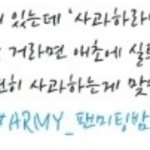 있는데 '사과하라
거라면 애초에 실
히 사과하는게 맞
#ARMY_팬미팅밤